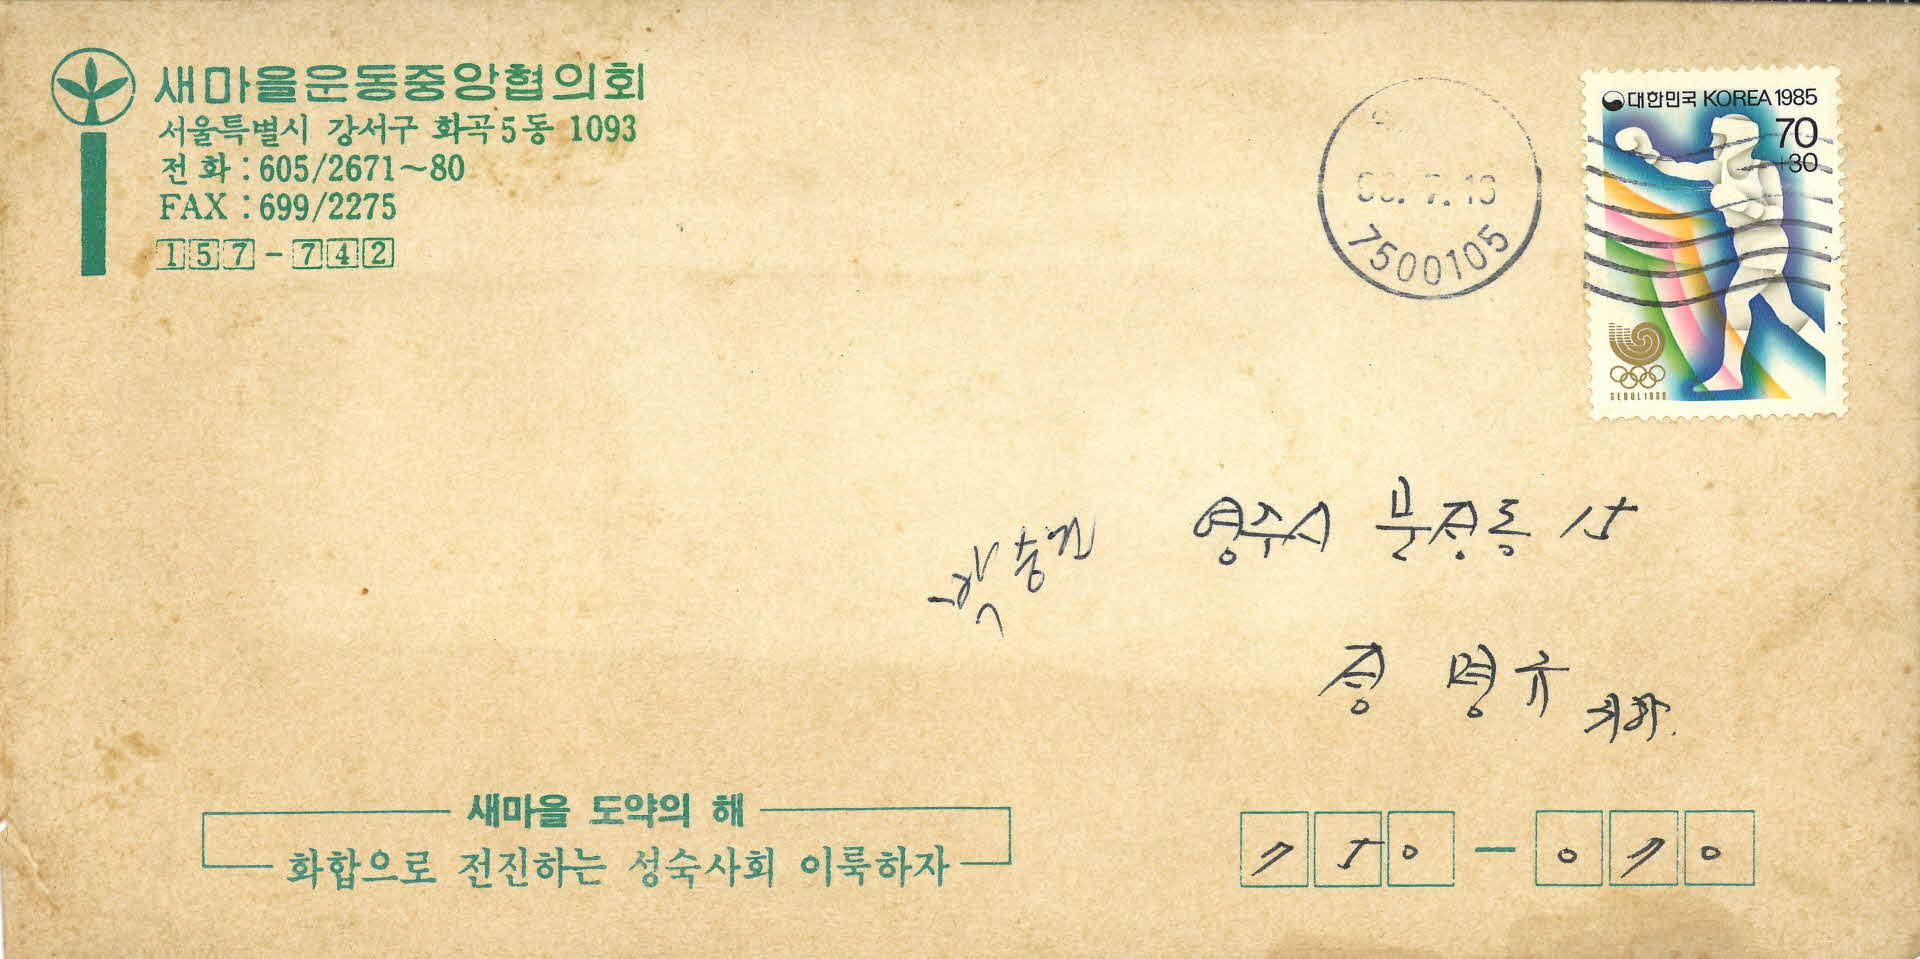 새마을운동중앙협의회
서울특별시 강서구 화곡5동 1093
전화 : 605/2671~80
FAX : 699/2275
157-742
7500105
대한민국 KOREA 1985
70
+30
SEOUL 1988
영주시 문정동 15
명규 귀하.
새마을 도약의 해
화합으로 전진하는 성숙사회 이룩하자
750-070